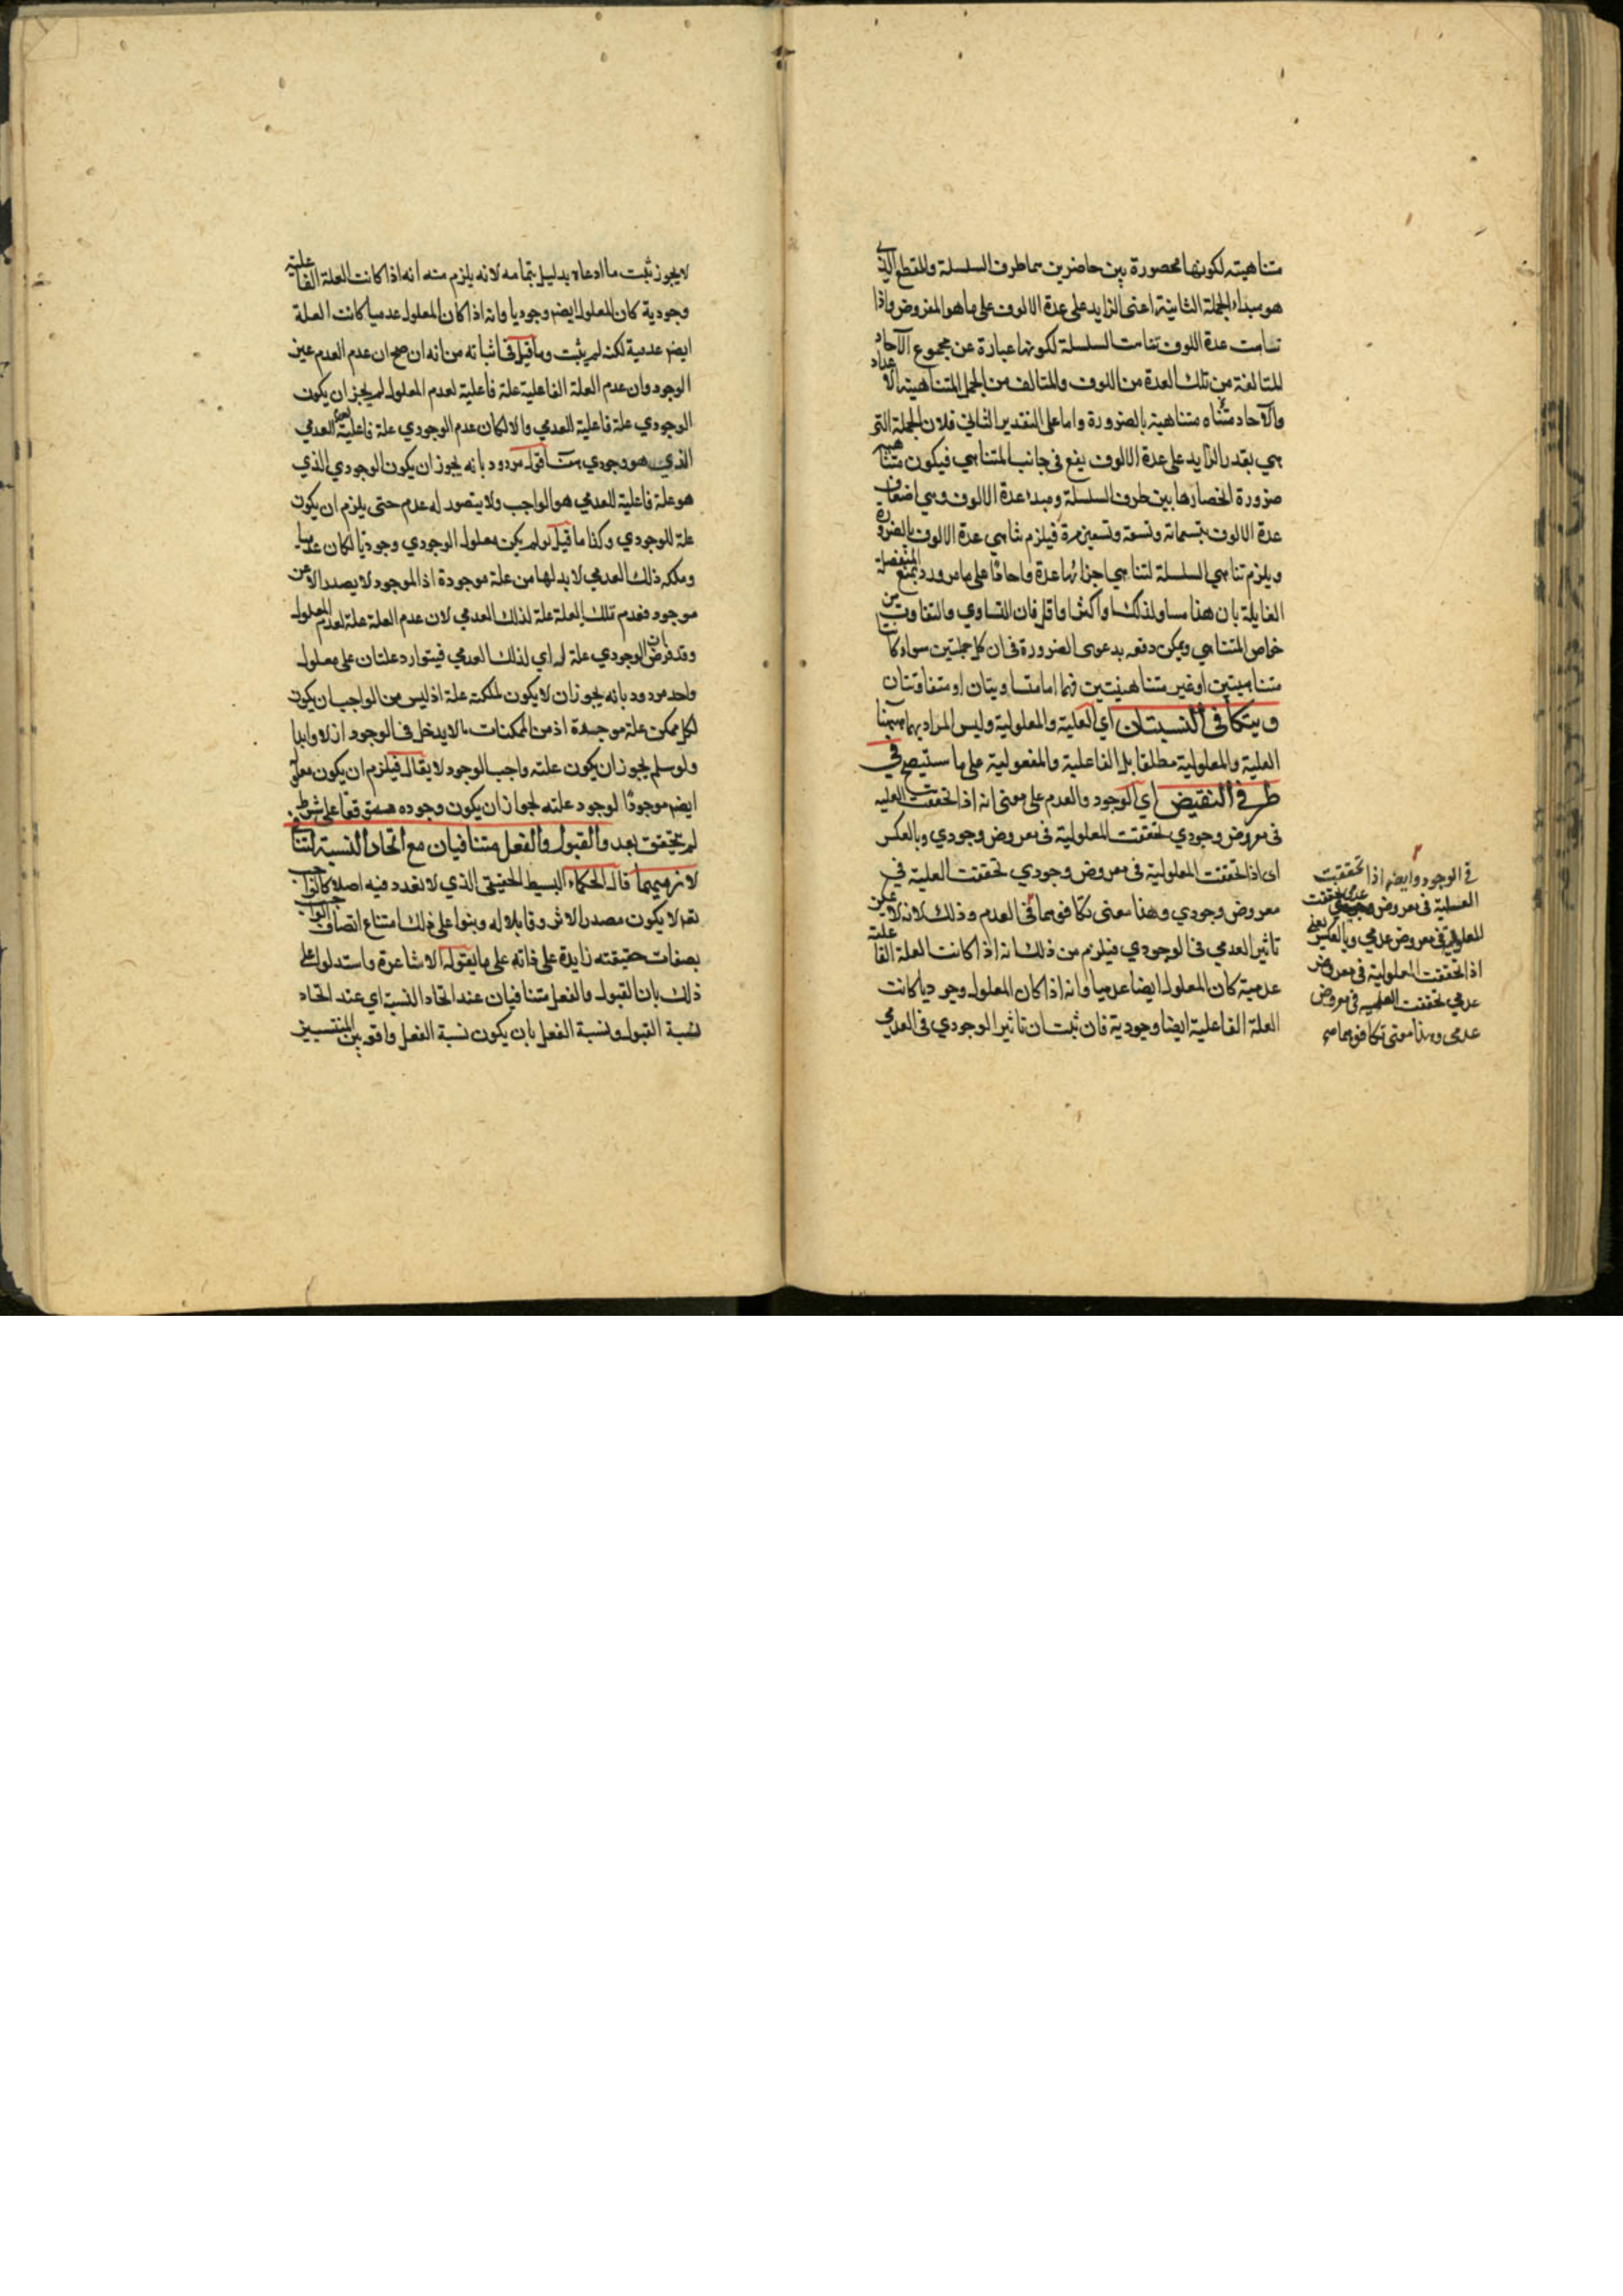 متناهيته لكونها محصورة بين حاضرين هما طرف السلسلة والمقطع الذي
هو مبداء الجملة الثانية اعنى الزايد على عدة الالوف على ما هو المفروض واذا
تناهت عدة اللوف تناهت السلسلة لكونها عبارة عن مجموع الآحاد
المتالفة من تلك العدة من اللوف والمتالف من الجمل المتناهية الاعداد
والآحاد متناه متناهية بالضرورة واما على التقدير الثاني فلان الجملة التي
هي بقدر الزايد على عدة الالوف يقع في جانب المتناهي فيكون متناهية
ضرورة انحصارها بين طرف السلسلة ومبدء عدة الالوف وهي اضعاف
عدة الالوف بتسمائه وتسعة وتسعين مرة فيلزم تناهي عدة الالوف بالضرورة
ويلزم تناهي السلسلة لتناهي اجزائها عدة واحادًا على ما مر ورد بمنع المنفصلة
القايلة بان هذا مساو لذلك او اكثر او اقل فان التساوي والتفاوت من
خواص المتناهي ويمكن دفعه بدعوى الضرورة في ان كل جملتين سواء كانتا
متناهيتين او غير متناهيتين فهما اما متساويتان او متفاوتتان
ويتكافى النسبتان اي العلية والمعلولية وليس المراد بهما ههنا
العلية والمعلولية مطلقا بل الفاعلية والمفعولية على ما ستيضح في
طرفي النقيض اي الوجود والعدم على معنى انه اذا تحققت العلية
في معروض وجودي تحققت المعلولية في معروض وجودي وبالعكس
اى اذا تحققت المعلولية في معروض وجودي تحققت العلية في
معروض وجودي وهذا معنى تكافوهما في العدم وذلك لانه لا يمكن
تاثير العدمي في الوجودي فيلزم من ذلك انه اذا كانت العلة الفاعلية
عدمية كان المعلول ايضا عدميا وانه اذا كان المعلول وجوديا كانت
العلة الفاعلية ايضا وجودية فان ثبت ان تاثير الوجودي في العدمي
في الوجود وايضه اذا تحققت
العلية في معروض عدمي تحققت
المعلولية في معروض عدمي وبالعكس يعني
اذا تحققت المعلولية في معروض
عدمي تحققت العلية في معروض
عدمى وهذا معنى تكافوهما صح
لا يجوز ثبت ما ادعاه بدليل بتمامه لانه يلزم منه انه اذا كانت العلة الفاعلية
وجودية كان المعلول ايضه وجوديا وانه اذا كان المعلول عدميا كانت العلة
ايضه عدمية لكنه لم يثبت وما قيل في اثباته من انه ان صح ان عدم العدم عين
الوجود وان عدم العلة الفاعلية علة فاعلية لعدم المعلول لم يجز ان يكون
الوجودي علة فاعلية للعدمي والا لكان عدم الوجودي علة فاعلية لعدم العدمي
الذي هو وجودي فمردود بانه يجوز ان يكون الوجودي الذي
هو علة فاعلية للعدمي هو الواجب ولا يتصور له عدم حتى يلزم ان يكون
علة للوجودي وكذا ما قيل لو لم يكن معلول الوجودي وجوديا لكان عدميا
وملكه ذلك العدمي لا بد لها من علة موجودة اذ الموجود لا يصدر الا عن
موجود فعدم تلك العلة علة لذلك العدمي لان عدم العلة علة لعدم المعلول
وقد فرض ان الوجودي علة له اي لذلك العدمي فيتوارد علتان على معلول
واحد مردود بانه يجوز ان لا يكون للملكة علة اذ ليس من الواجب ان يكون
لكل ممكن علة موجدة اذ من الممكنات ما لا يدخل في الوجود ازلا وابدا
ولو سلم يجوز ان يكون علته واجب الوجود لا يقال فيلزم ان يكون معلوله
ايضه موجودًا لوجود علته لجواز ان يكون وجوده متوقفا على شرط
لم يتحقق بعد والقبول والفعل متنافيان مع اتحاد النسبة لتنافي
لازميهما قال الحكماء البسيط الحقيقي الذي لا تعدد فيه اصلا
لا يكون مصدرا لاثر وقابلا له وبنوا على ذلك امتناع اتصاف الواجب
بصفات حقيقته زايدة على ذاته على ما يقوله الاشاعرة واستدلوا على
ذلك بان القبول والفعل متنافيان عند اتحاد النسبة اي عند اتحاد
نسبة القبول ونسبة الفعل بان يكون نسبة الفعل واقعه بين المنتسبين